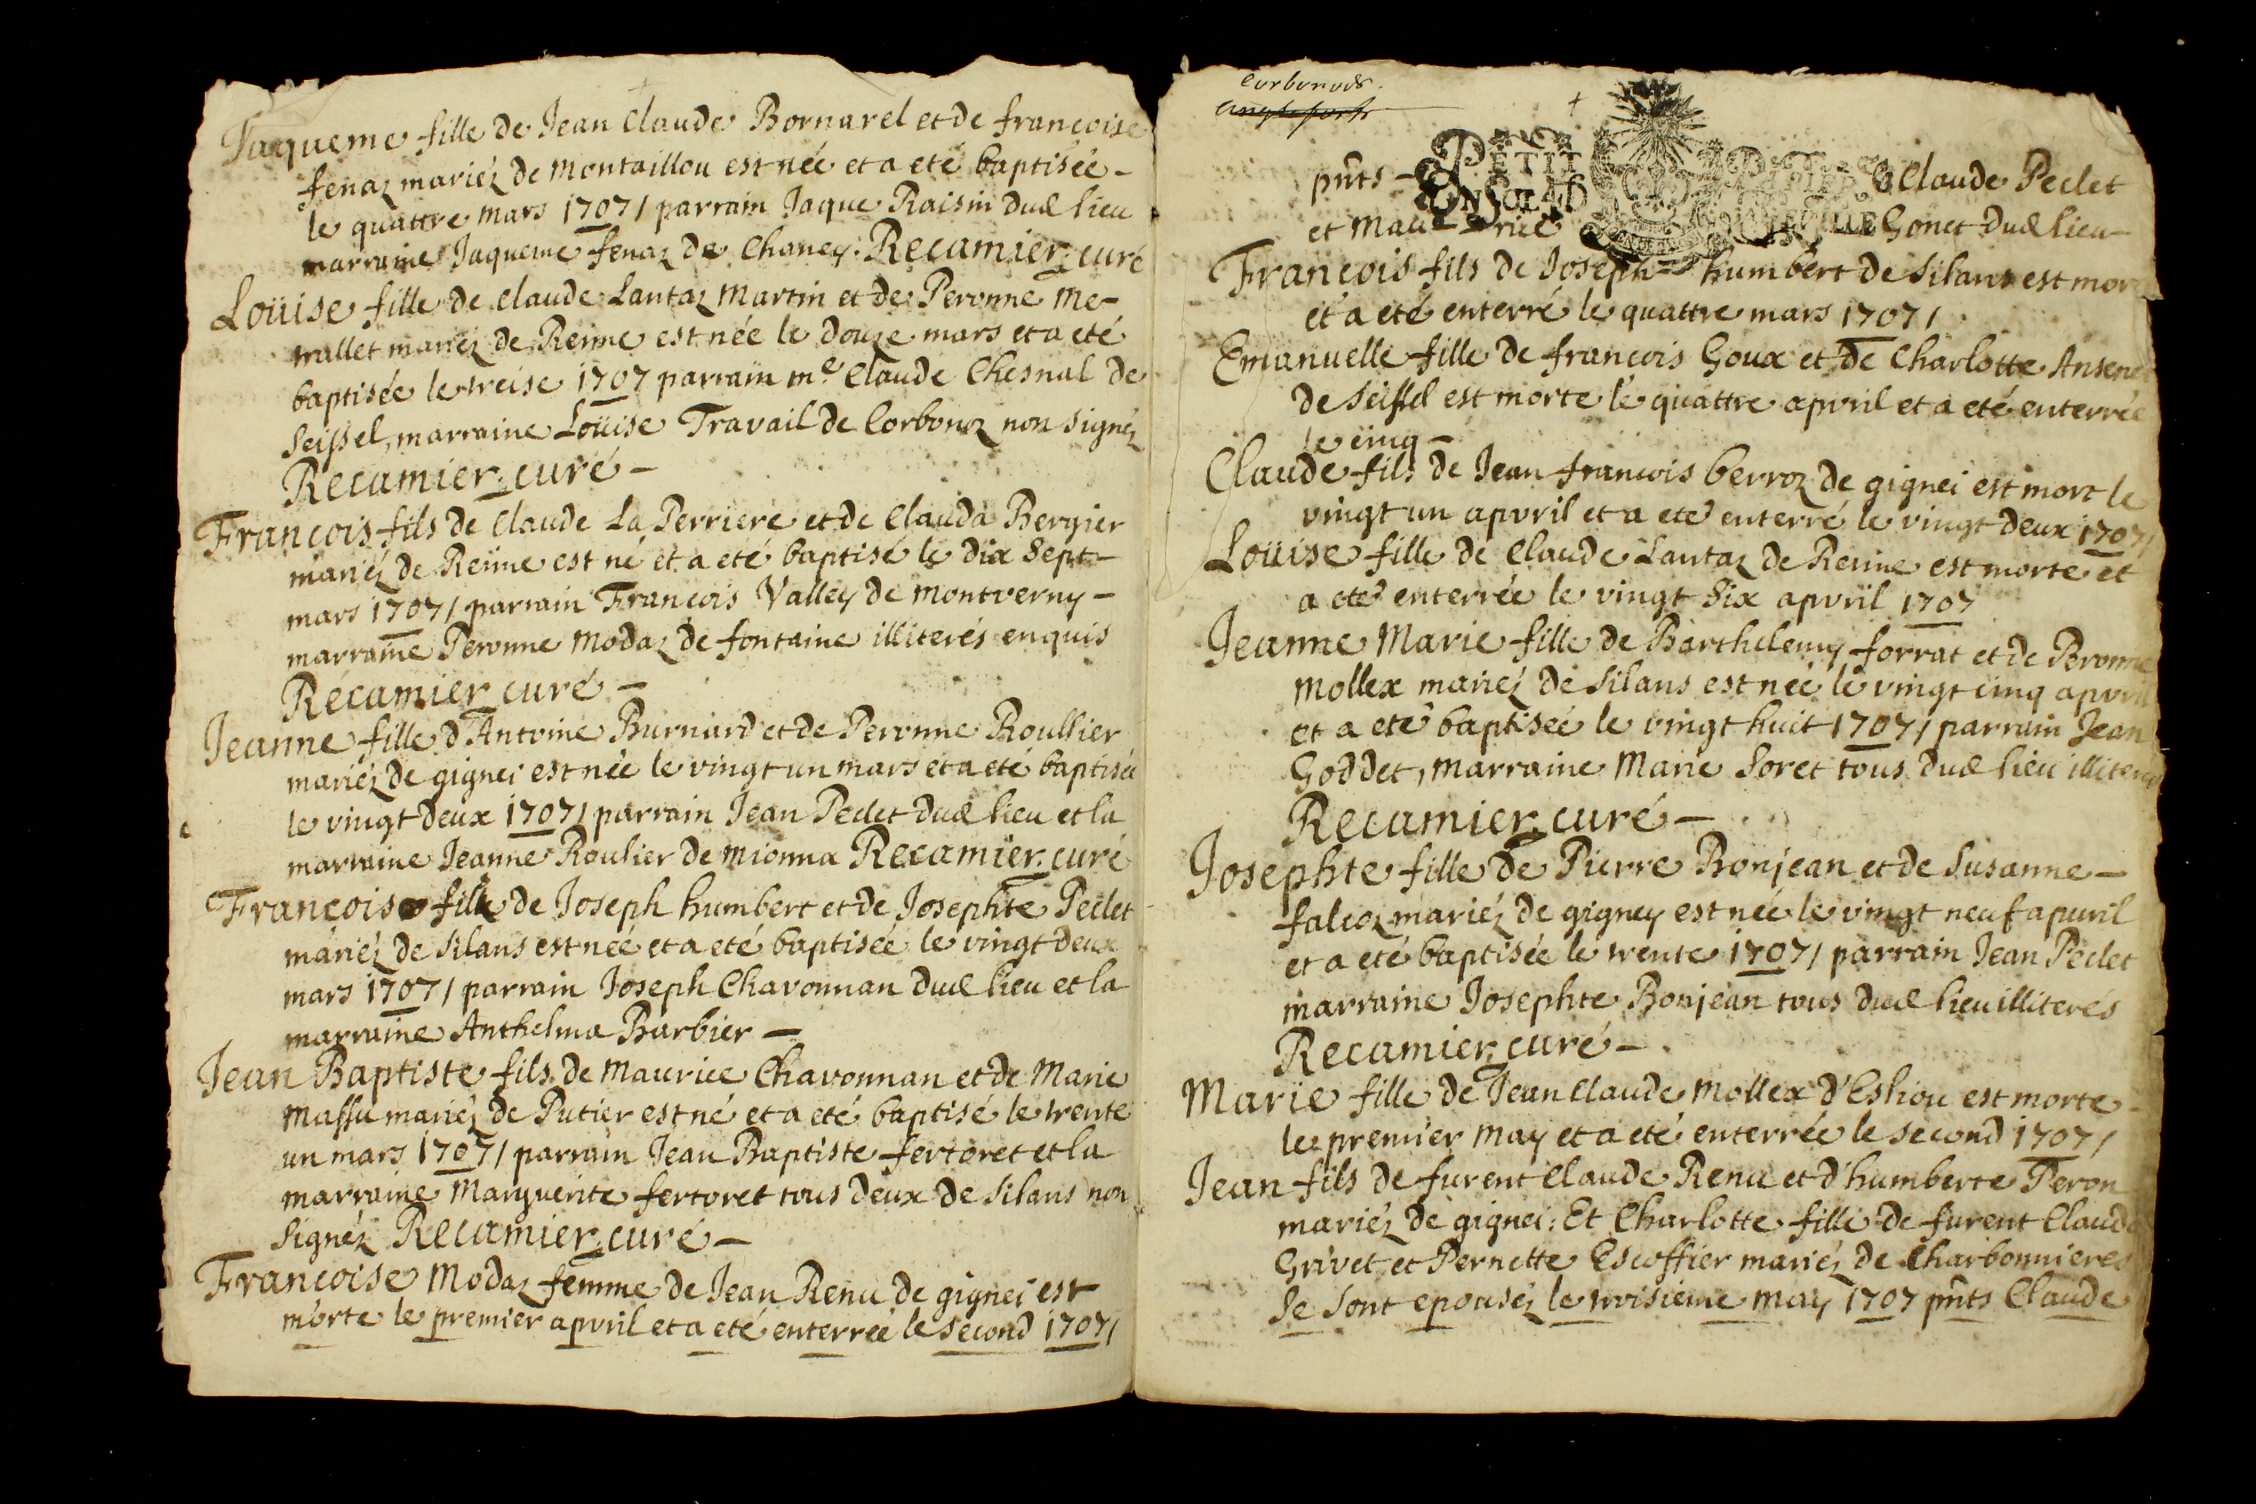 Jaqueme fille de Jean Claude Bornarel et de francoise
fenaz mariéz de montaillou est née et a eté baptisée -
le quattre mars 1707 / parrain Jaque Raisin dud lieu
marraine Jaqueme fenaz de Chaney. Recamier, curé
Loüise fille de Claude Lantaz Martin et de Peronne me-
mallet mariéz de Reinne est née le douze mars et a eté
baptisée le treise 1707 parrain me Claude Chesnal de
Seissel, marraine Loüise Travail de Corbonoz non signéz
Recamier, curé -
Francois fils de Claude La Perriere et de Clauda Bergier
mariéz de Reinne est né et a eté baptisé le dix sept -
mars 1707 / parrain Francois Valley de montverny -
marraine Peronne Modaz de fontaine illiterés enquis
Récamier curé -
Jeanne fille d'Antoine Burnard et de Peronne Roullier
mariéz de gignei est née le vingt un mars et a eté baptisée
le vingt deux 1707 / parrain Jean Peclet dud lieu et la
marraine Jeanne Roulier de mionna Recamier, curé
Francoise fille de Joseph humbert et de Josephte Peclet
mariéz de Silans est née et a eté baptisée le vingt deux
mars 1707 / parrain Joseph Chavonnan dud lieu et la
marraine Anthelma Barbier -
Jean Baptiste fils de Maurice Chavonnan et de Marie
Massu mariéz de Putier est né et a eté baptisé le trente
un mars 1707 / parrain Jean Baptiste fertoret et la
marraine Marguerite fertoret tous deux de Silans non
signéz Recamier, curé -
Francoise Modaz femme de Jean Renu de gignei est
morte le premier apvril et a eté enterrée le second 1707 /
Corbonod.
pnts - PETIT Claude Peclet
EN SOL 4D
et Mau rice Gonet dud lieu -
Francois fils de Joseph humbert de Silans est mort
et a eté enterré le quattre mars 1707 /
Emanuelle fille de francois Goux et de Charlotte
de Seissel est morte le quattre apvril et a eté enterrée
le cinq -
Claude fils de Jean francois berroz de gignei est mort le
vingt un apvril et a eté enterré le vingt deux 1707 /
Loüise fille de Claude Lantaz de Reinne est morte et
a eté enterrée le vingt six apvril 1707
Jeanne Marie fille de Barthelemy forrat et de Peronne
Mollex mariéz de Silans est née le vingt cinq apvril
et a eté baptisée le vingt huit 1707 / parrain Jean
Goddet, marraine Marie Soret tous dud lieu illiterés
Recamier, curé -
Josephte fille de Pierre Bonjean et de Susanne -
falcoz mariéz de gigney est née le vingt neuf apvril
et a eté baptisée le trente 1707 / parrain Jean Peclet
marraine Josephte Bonjean tous dud lieu illiterés
Recamier, curé -
Marie fille de Jean Claude Mollex d'Eshou est morte
le premier may et a eté enterrée le second 1707 /
Jean fils de furent Claude Renu et d'humberte Peron
mariéz de gignei; Et Charlotte fille de furent Claude
Grivet et Pernette Escoffier mariéz de Charbonnieres
se sont epouséz le troisieme may 1707 pnts Claude